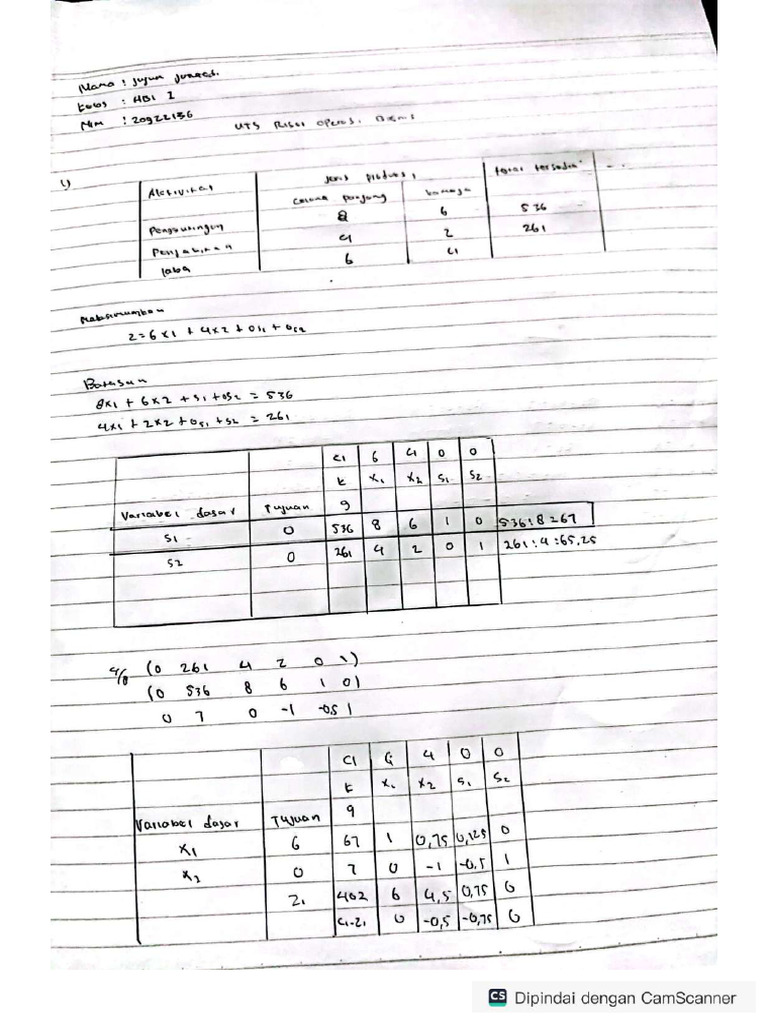 Nama : Jujun Junaedi.
Kelas : AB1 I
Nim : 20922136
UTS Riset Operasi Bisnis
1)
Aktivitas Jenis produksi total tersedia
celana panjang kemeja
Pengguntingan 8 6 536
Penjahitan 4 2 261
laba 6 4
Maksimumkan
Z = 6x1 + 4x2 + 0s1 + 0s2
Batasan
8x1 + 6x2 + s1 + 0s2 = 536
4x1 + 2x2 + 0s1 + s2 = 261
C1 6 4 0 0
k x1 x2 s1 s2
Variabel dasar Tujuan 9
S1 0 536 8 6 1 0 536:8=67
S2 0 261 4 2 0 1 261:4:65,25
4/8 (0 261 4 2 0 1)
(0 536 8 6 1 0)
0 7 0 -1 -05 1
C1 6 4 0 0
k x1 x2 s1 s2
Variabel dasar Tujuan 9
x1 6 67 1 0,75 0,125 0
x2 0 7 0 -1 -0,5 1
Z1 402 6 4,5 0,75 0
C1-Z1 0 -0,5 -0,75 0
CS Dipindai dengan CamScanner